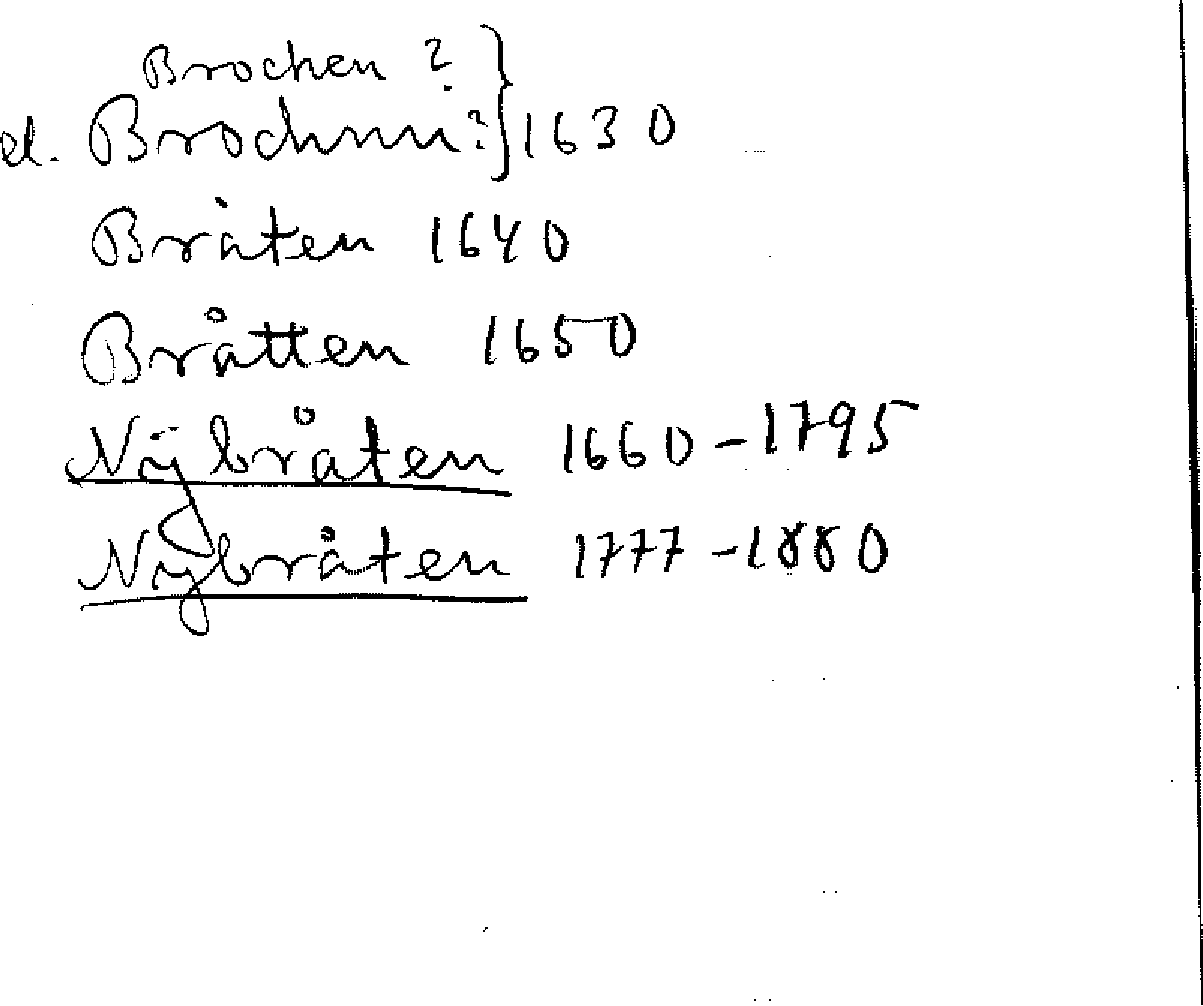 Brochen ?
el. Brochnn ? } 1630
Bråten 1640
Bråtten 1650
Nÿbråten 1660-1795
Nÿbråten 1777-1880